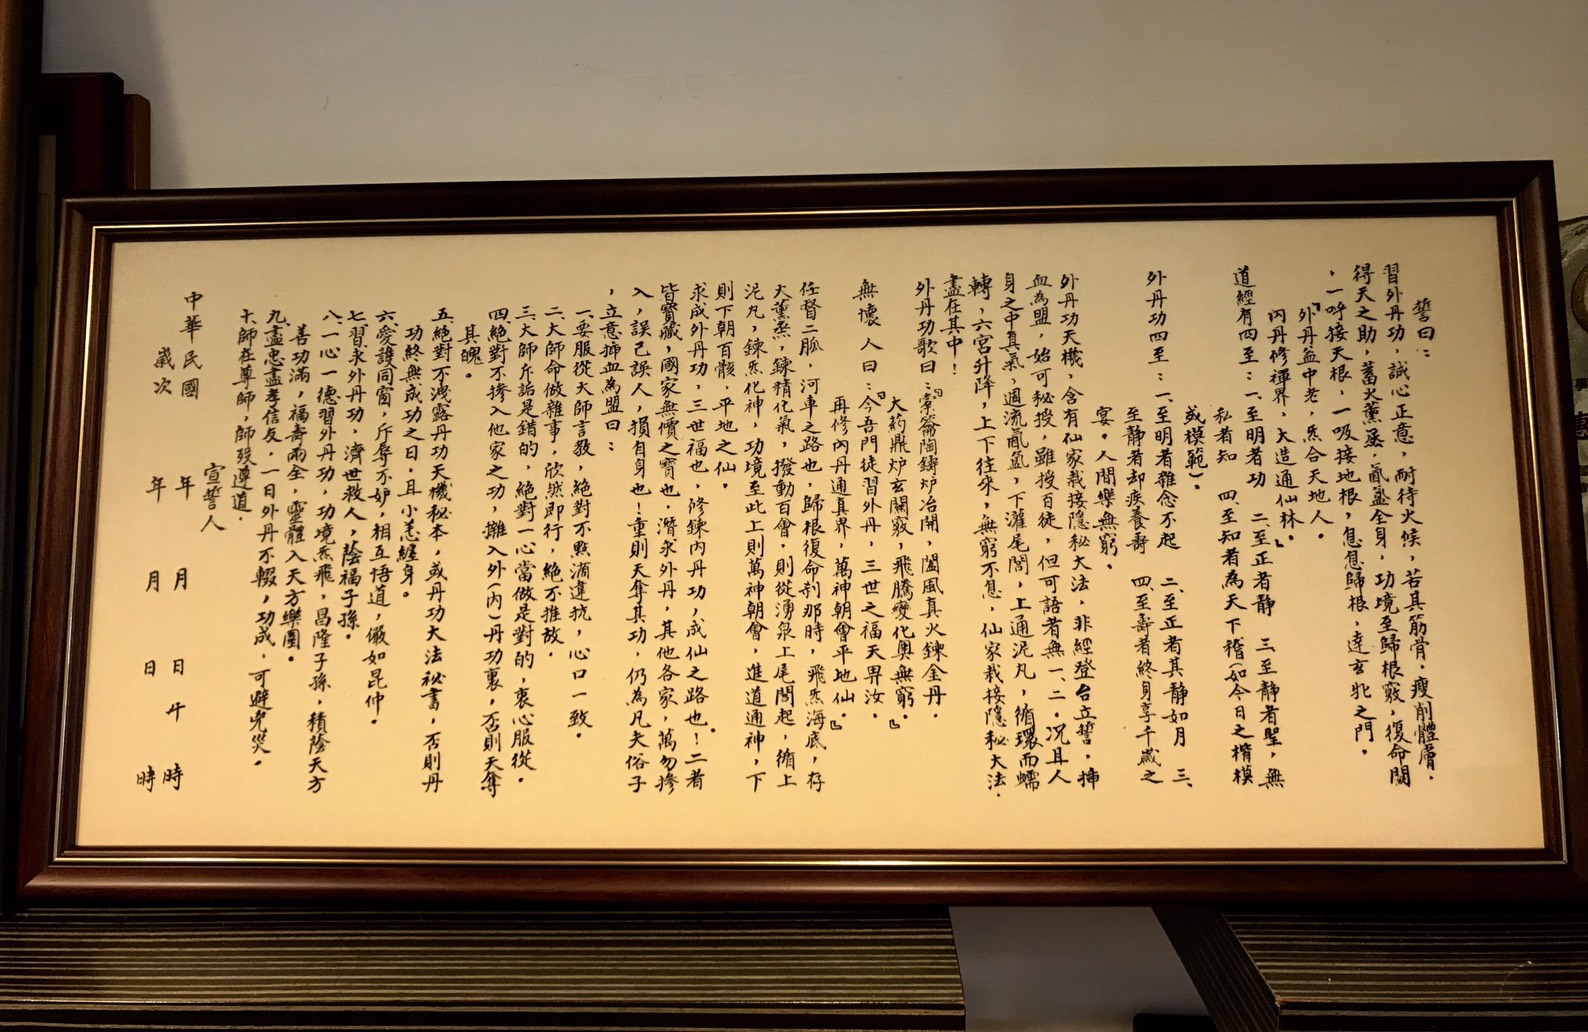 誓曰：
習外丹功，誠心正意，耐待火候，苦其筋骨，瘦削體膚，
得天之助，蓄火薰蒸，氣盈全身，功境至歸根竅，復命關
，一呼接天根，一吸接地根，息息歸根，達玄牝之門。
『外丹盆中老，炁合天地人。
內丹修禪界，大造通仙林。』
道經有四至：一、至明者功　二、至正者靜　三、至靜者聖，無
私者知　四、至知者為天下稽（如今日之楷模
或模範）。
外丹功四至：一、至明者雜念不起　二、至正者其靜如月　三、
至靜者却疾養壽　四、至壽者終身享千歲之
宴。人間樂無窮。
外丹功天機，含有仙家栽接隱秘大法，非經登台立誓，揷
血為盟，始可秘授，雖授百徒，但可語者無一、二。況且人
身之中真氣，週流氤氳，下灌尾閭，上通泥丸，循環而蠕
轉，六宮升降，上下往來，無窮不息，仙家栽接隱秘大法，
盡在其中！
外丹功歌曰：『橐籥陶鑄炉冶開，闔風真火鍊金丹。
大葯鼎炉玄關竅，飛騰變化奧無窮。』
無壞人曰：『今吾門徒習外丹，三世之福天畀汝。
再修內丹通真界，萬神朝會平地仙。』
任督二脈，河車之路也，歸根復命刹那時，飛炁海底，存
火薰蒸，鍊精化氣，撥動百會，則從湧泉上尾閭起，循上
泥丸，鍊炁化神，功境至此上則萬神朝會，進道通神，下
則下朝百骸，平地之仙。
求成外丹功，三世福也，修鍊內丹功，成仙之路也！二者
皆寶藏，國家無價之寶也，潛求外丹，其他各家，萬勿摻
入，誤己誤人，損自身也！重則天奪其功，仍為凡夫俗子
，立意揷血為盟曰：
一、要服從大師言教，絕對不點滴違抗，心口一致。
二、大師命做雜事，欣然即行，絕不推故。
三、大師斥詬是錯的，絕對一心當做是對的，衷心服從。
四、絕對不摻入他家之功，攤入外（內）丹功裏，否則天奪
其魄。
五、絕對不洩露丹功天機秘本，或丹功大法祕書，否則丹
功終無成功之日，且小恙纏身。
六、愛護同窗，斥辱不妒，相互悟道，儼如昆仲。
七、習求外丹功，濟世救人，蔭福子孫。
八、一心一德習外丹功，功境炁飛，昌隆子孫，積蔭天方
善功滿，福壽兩全，靈體入天方樂園。
九、盡忠盡孝信友，一日外丹不輟，功成，可避兇災。
十、師在尊師，師歿遵道。
宣誓人
中華民國　年　月　日　午　時
歲次　年　月　日　時